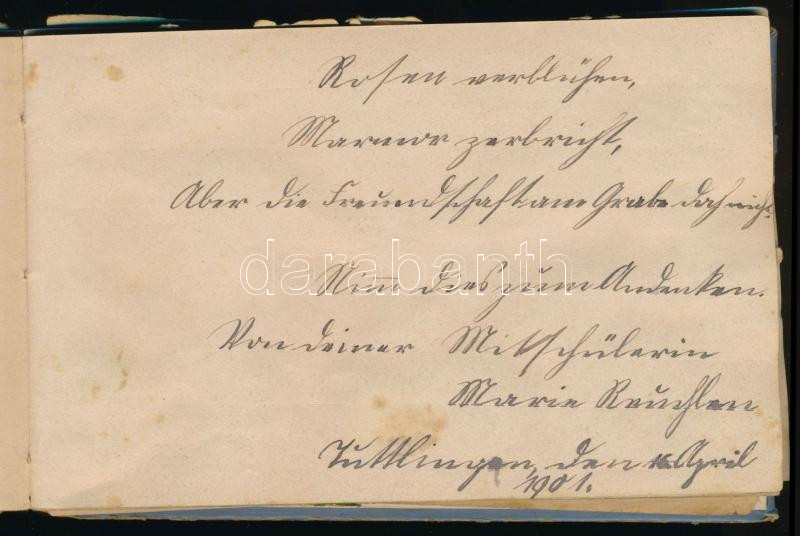 Rosen verblühen,
Marmor zerbricht,
Aber die Freundschaft am Grabe doch nicht.
darabanth
Nim̅ dies zum Andenken.
Von deiner Mitschülerin
Marie Reuchlen
Tuttlingen, den April
1901.